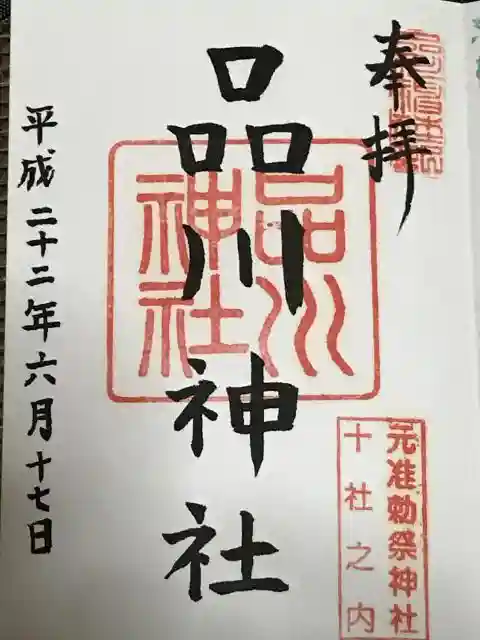 奉拝
品川神社
品川
神社
元准勅祭神社
十社之内
平成二十二年六月十七日